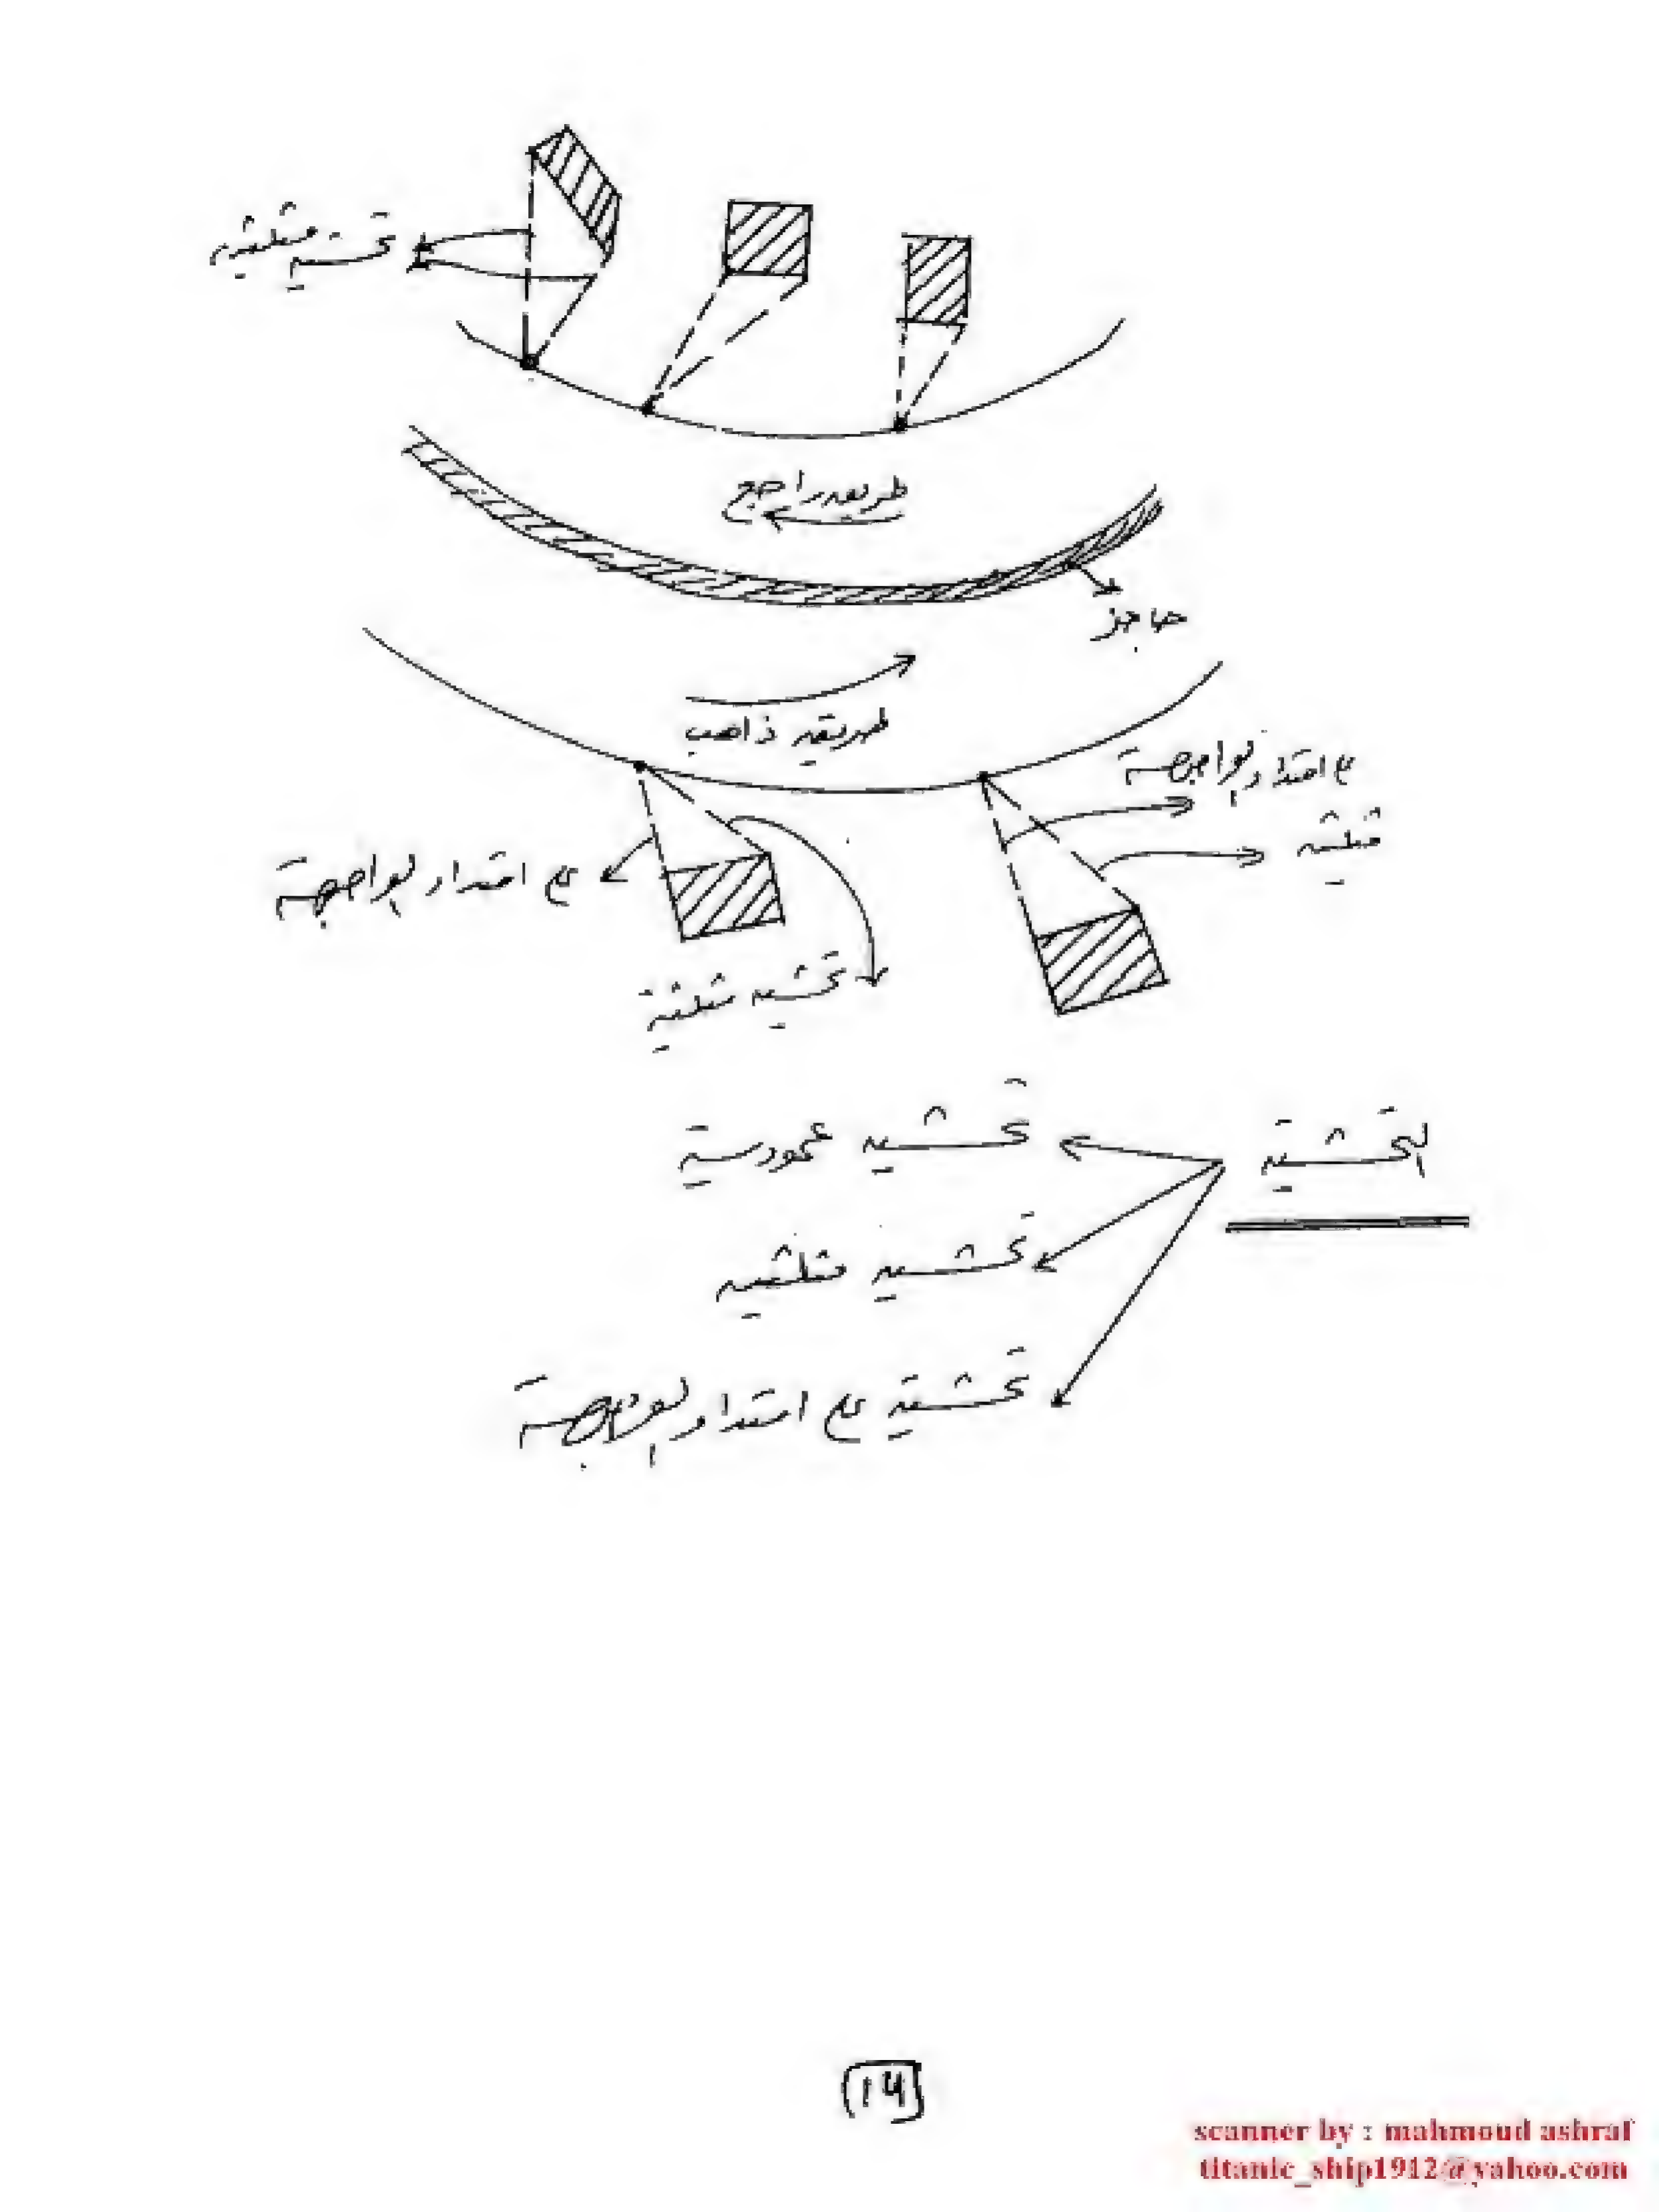 تحشية مثلثية
طريق راجع
حاجز
طريق ذاهب
على امتداد الواجهة
مثلثية
على امتداد الواجهة
تحشية مثلثية
التحشية
تحشية عمودية
تحشية مثلثية
تحشية على امتداد الواجهة
14
scanner by : mahmoud ashraf
titanic_ship1912@yahoo.com